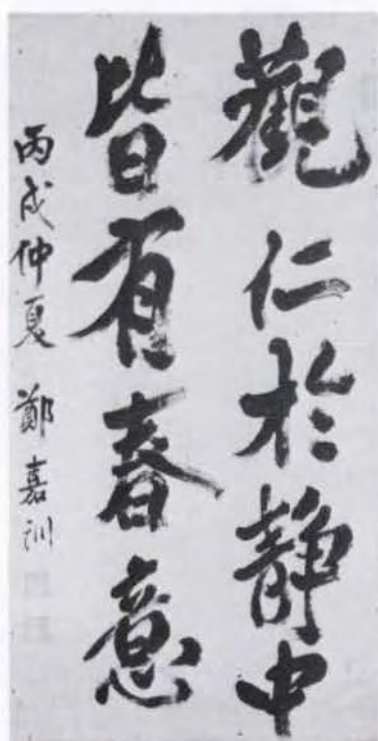 觀仁於静中
皆有春意
丙戌仲夏 鄭嘉訓